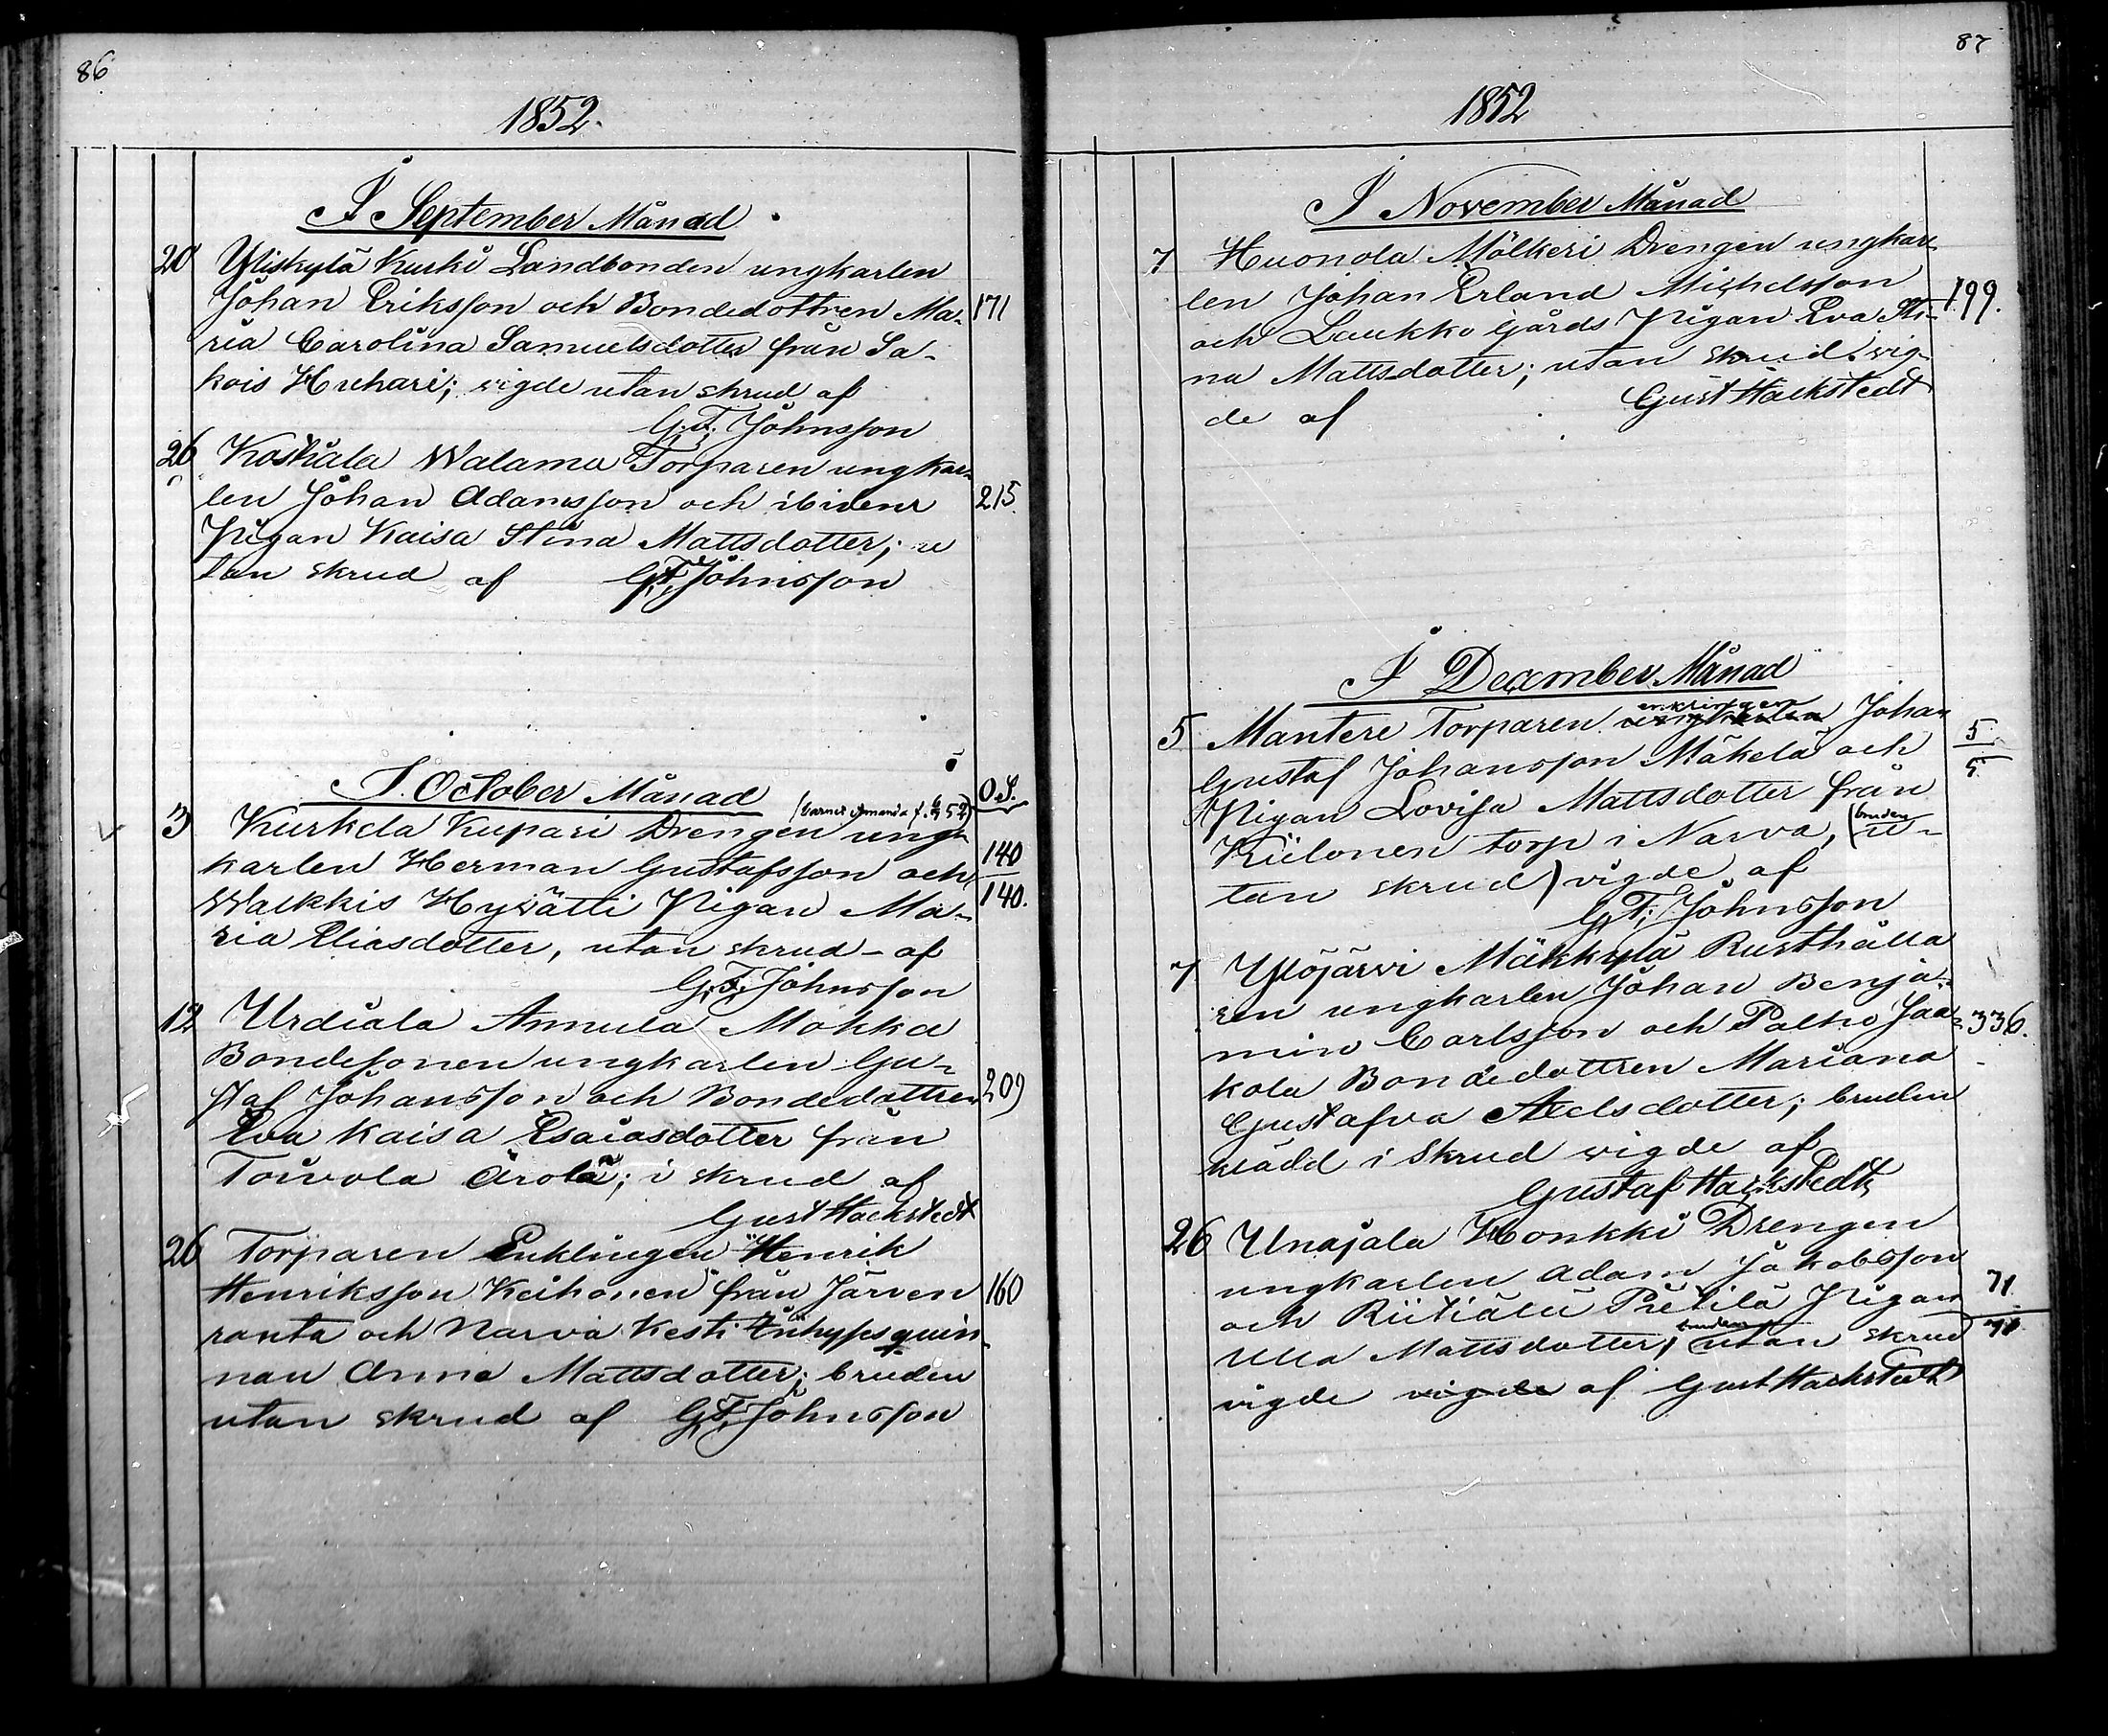 86
1852.
I September Månad.
20 Yliskylä Kurki Landbonden ungkarlen
Johan Eriksson och Bondedottren Ma- 171
ria Carolina Samuelsdotter från Sa-
kois Huhari; vigde utan skrud af
G. F. Johnsson
26 Koskala Walama Torparen ungkar-
len Johan Adamsson och ibidem 215.
Pigan Kaisa Stina Mattsdotter; u
tan skrud af G. F. Johnsson
I. October Månad O S.
3 Kurkela Kupari Drengen ung-
karlen Herman Gustafsson och 140
Walkkis Hyvätti Pigan Ma- 140.
ria Eliasdotter, utan skrud - af
G. F. Johnsson
12 Urdiala Annula Mokka
Bondesonen ungkarlen Gu-
staf Johansson och Bondedottren 209
Eva Kaisa Esaiasdotter från
Toivola Arola; i skrud af
Gust Hackstedt
26 Torparen Enklingen Henrik
Henriksson Keihonen från Järven 160
ranta och Narva Kesti Inhyses quin-
nan Anna Mattsdotter; bruden
utan skrud af G. F. Johnsson
87
1852
I November Månad
7 Huonola Mölkeri Drengen ungkar-
len Johan Erland Michelsson 199.
och Laukko Gårds Pigan Eva Sti-
na Mattsdotter; utan skrud vig-
de af Gust Hackstedt
I December Månad
enklingen
5 Mantere Torparen ungkarlen Johan 5
Gustaf Johansson Mäkelä och 5.
Pigan Lovisa Mattsdotter från
Kiilonen torp i Narva, (bruden u-
tan skrud) vigde af
G. F. Johnsson
7 Ylöjärvi Mäkkylä Rusthålla
ren ungkarlen Johan Benja-
min Carlsson och Palho Jaa- 336.
kola Bondedottren Mariana
Gustafva Axelsdotter; bruden
klädd i skrud vigde af
Gustaf Hackstedt
26 Unajala Honkki Drengen
ungkarlen Adam Jakobsson 71
och Riitiälä Prétilä Pigan
Ulla Mattsdotter, bruden utan skrud 71
vigde vigde af Gust Hackstedt